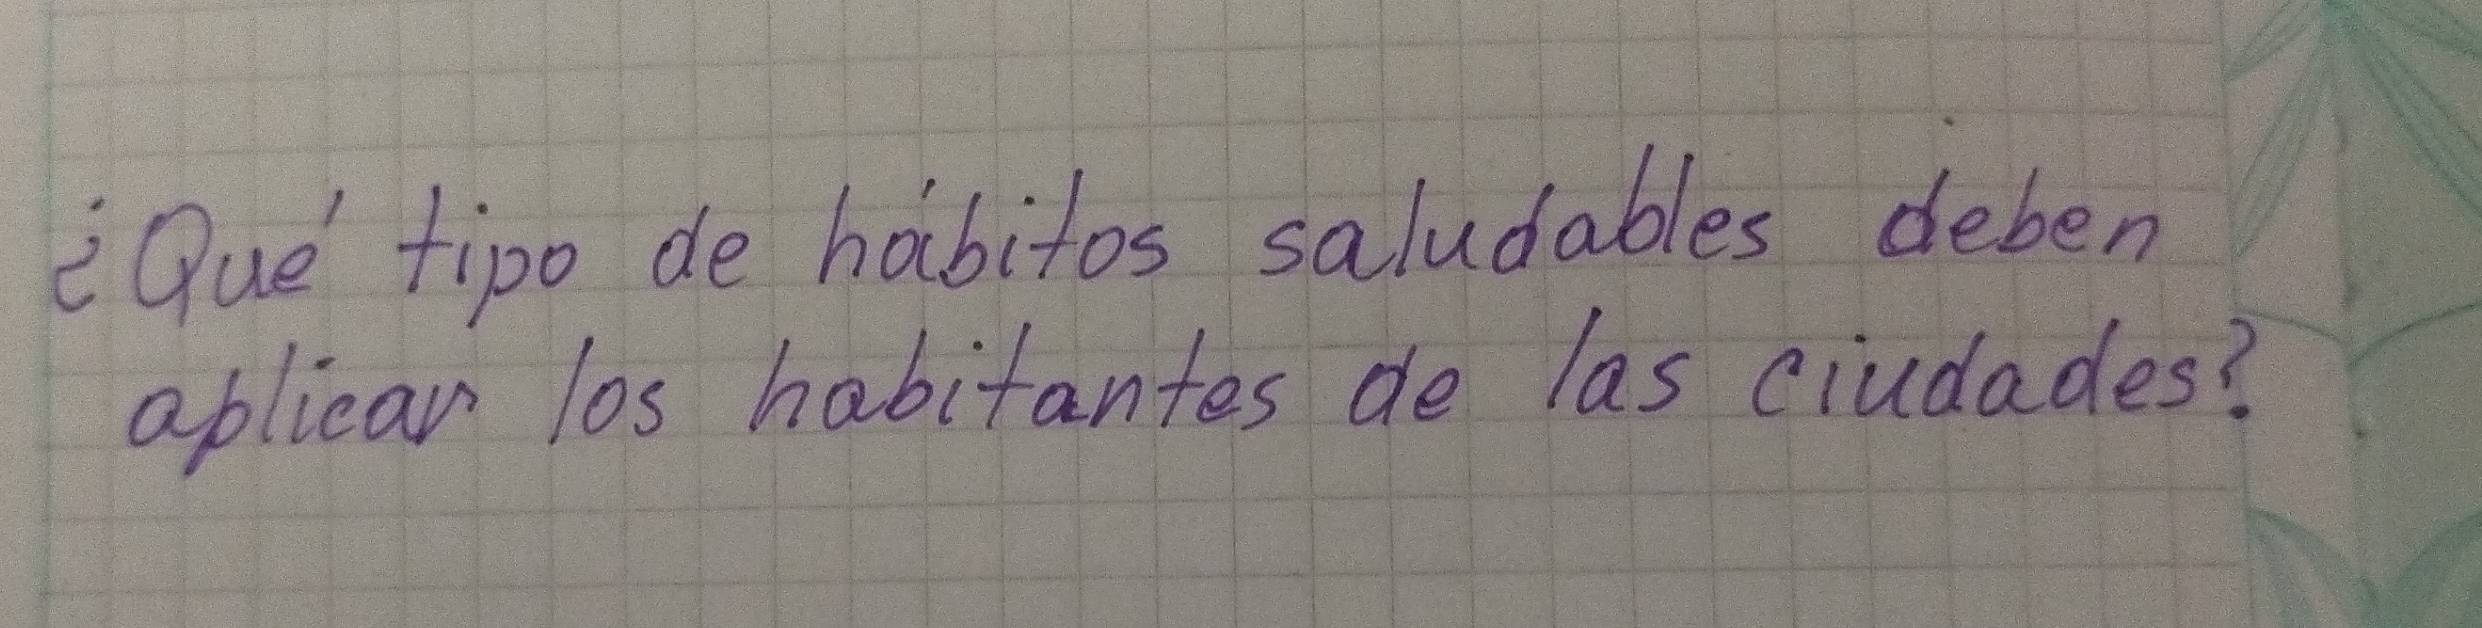 ¿Qué tipo de hábitos saludables deben
aplicar los habitantes de las ciudades?